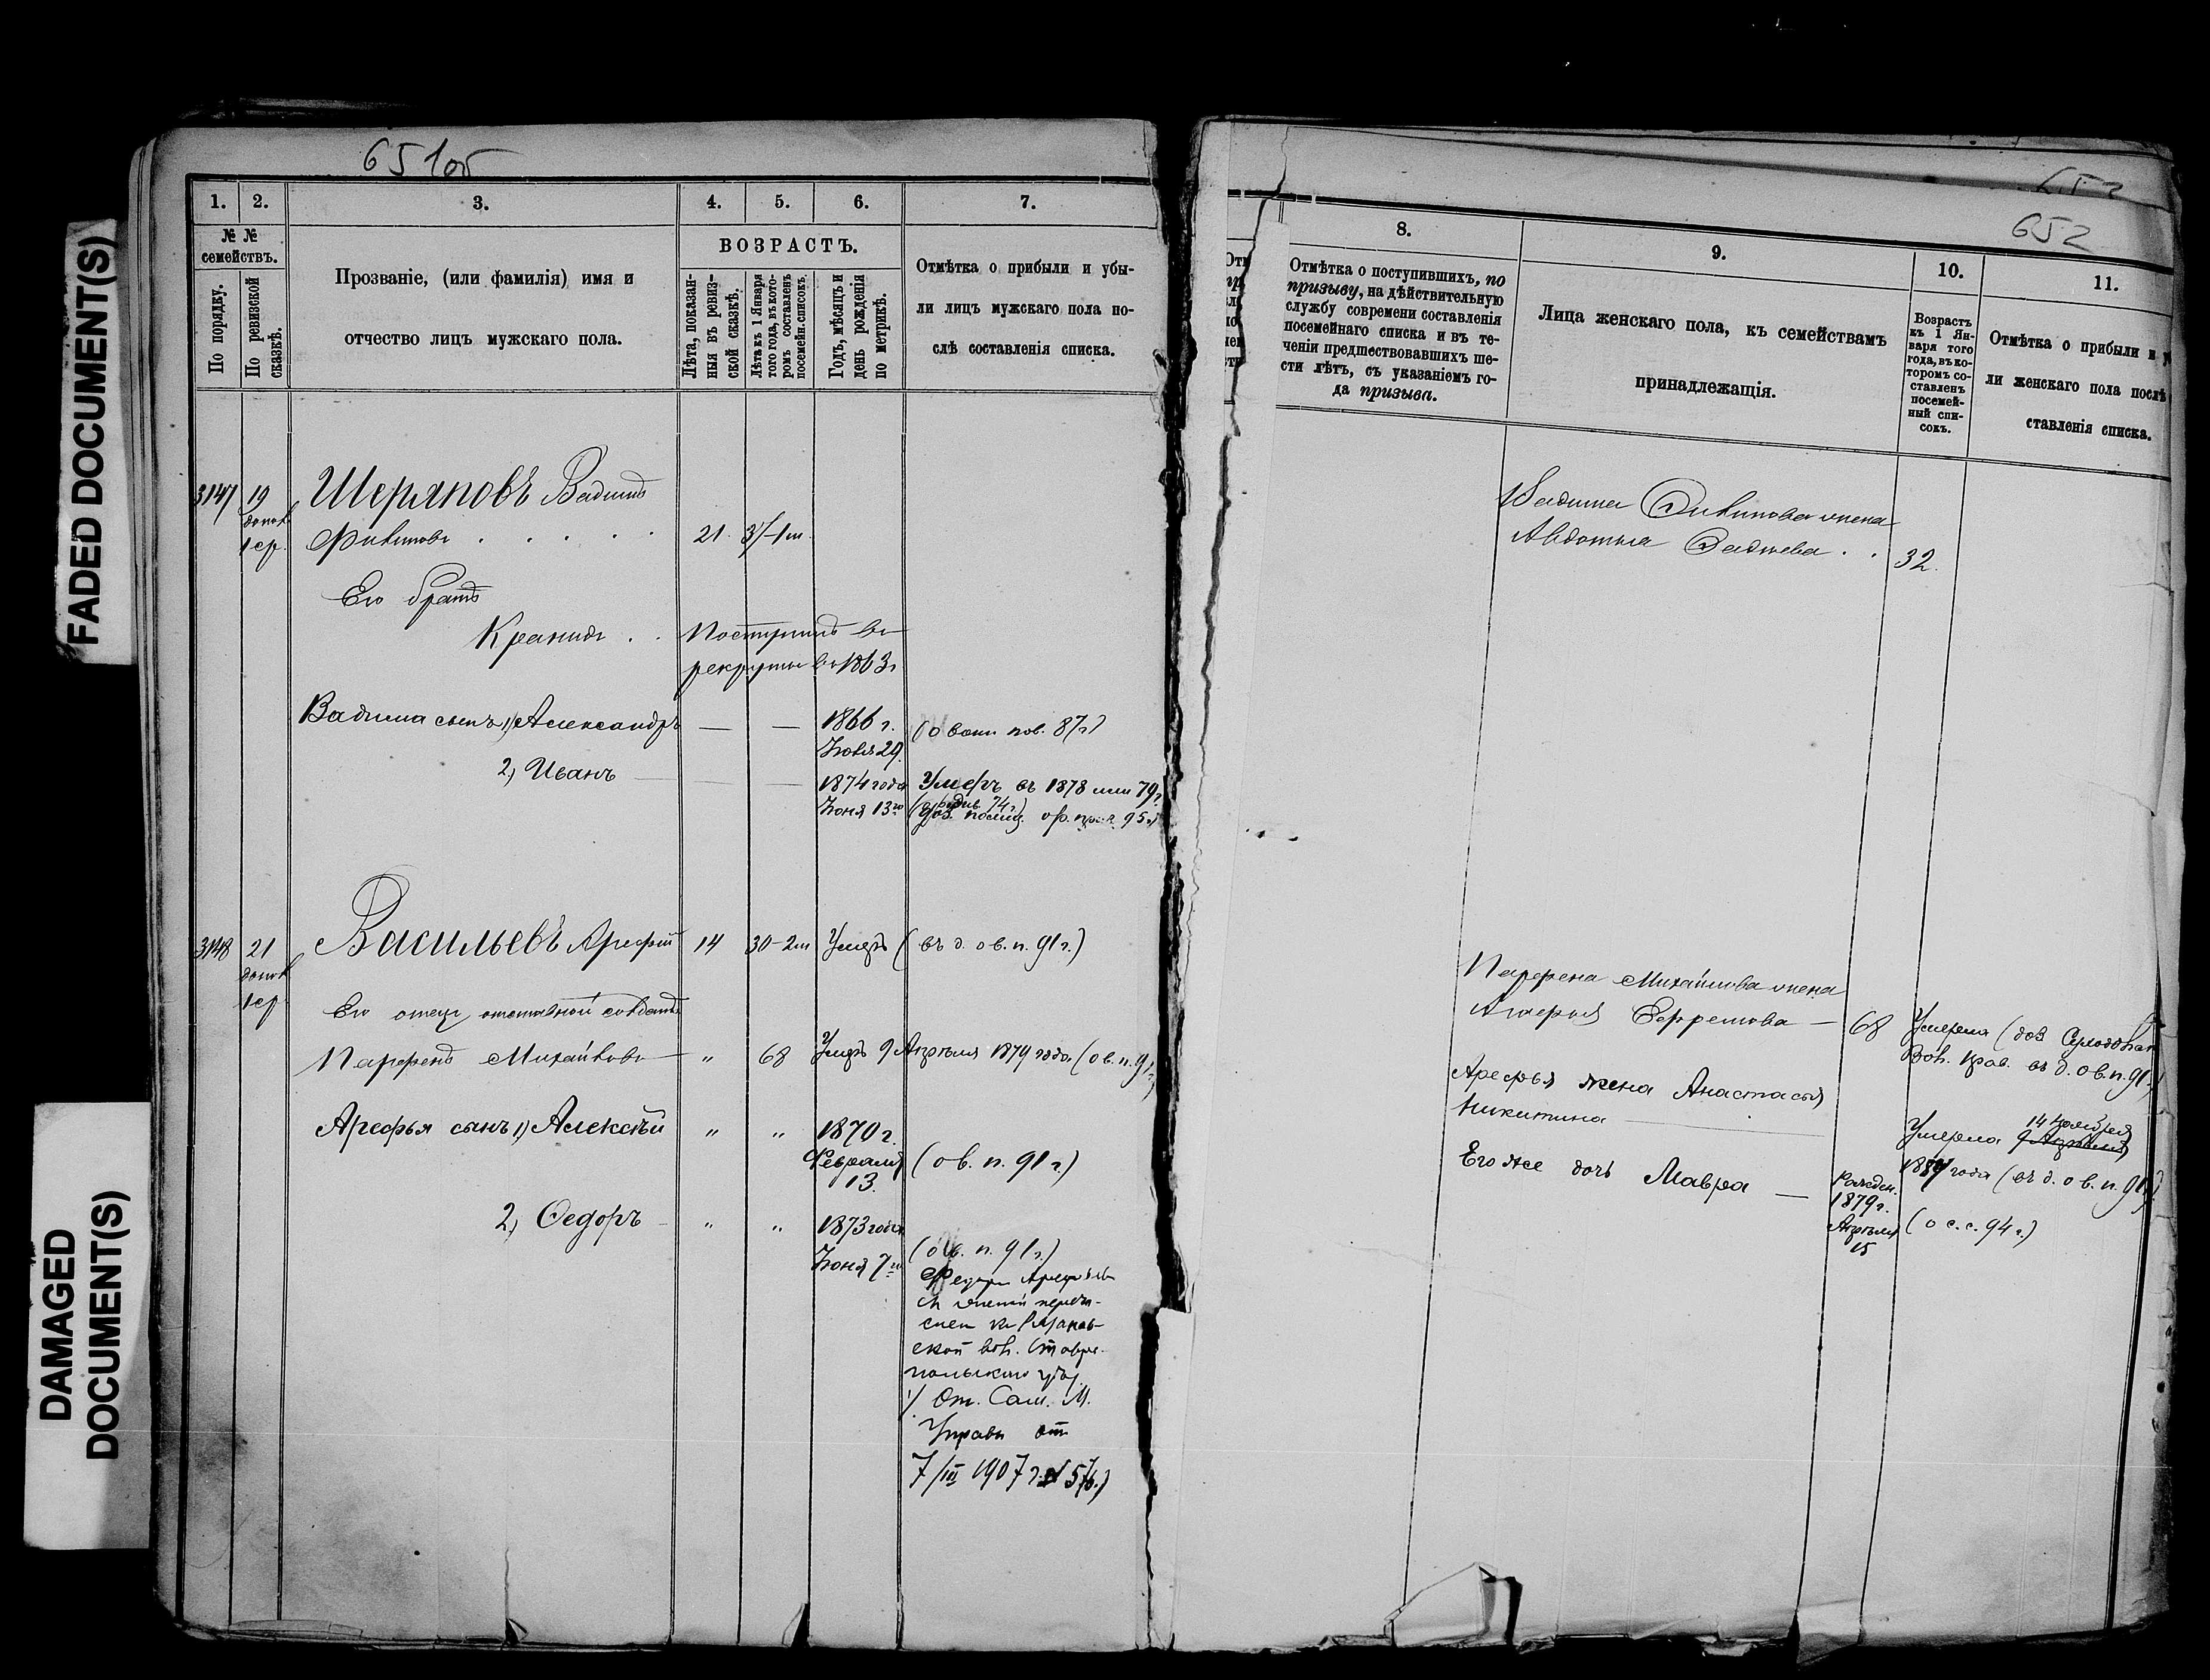 FADED DOCUMENT(S)
DAMAGED
DOCUMENT(S)
651об
1. 2. 3. 4. 5. 6. 7.
№ №
семействъ.
По порядку.
По ревизской
сказкѣ.
Прозваніе, (или фамилія) имя и
отчество лицъ мужскаго пола.
ВОЗРАСТЪ.
Лѣта, показан-
ныя въ ревиз-
ской сказкѣ.
Лѣта къ 1 Января
того года, въ кото-
ромъ составленъ
посемейн. списокъ.
Годъ, мѣсяцъ и
день рожденія
по метрикѣ.
Отмѣтка о прибыли и убы-
ли лицъ мужскаго пола по-
слѣ составленія списка.
3147 19 Шеряповъ Вадимъ
допол
1 ср. 21 3/-1м
Его братъ
Кранидъ . . Поступилъ въ
рекруты въ 1863г
Вадима сынъ 1) Александръ — — 1866 г. (о воин. пов. 87г)
Іюля 29.
2) Иванъ — — 1874 года Умеръ въ 1878 или 79г
Іюня 13го
3148 21 Васильевъ Арефій 14 30-2м Умеръ (въ д. о в. п. 91 г.)
допол
1 ср.
Его отецъ отставной солдатъ
Парфенъ Михайловъ — " 68 Умеръ 9 Апрѣля 1879 года (о в. п. 91г)
Арефья сынъ 1) Алексѣй " " 1870 г.
Февраля (о в. п. 91 г.)
13.
2) Ѳедоръ " " 1873 года
Іюня 7го (о в. п. 91 г.)
Федоръ Арефьевъ
съ женой перечи-
слен
ской вол. Ставро-
польскаго уѣз.
От. Сам. М.
Управы от
7/III 1907 г. № 576.)
652
8. 9. 10. 11.
Отмѣтка о поступившихъ, по
призыву, на дѣйствительную
службу современи составленія
посемейнаго списка и въ те-
ченіи предшествовавшихъ ше-
сти лѣтъ, съ указаніемъ го-
да призыва.
Лица женскаго пола, къ семействамъ
принадлежащія.
Возрастъ
къ 1 Ян-
варя того
года, въ ко-
торомъ со-
ставленъ
посемей-
ный спи-
сокъ.
Отмѣтка о прибыли и
ли женскаго пола послѣ
ставленія списка.
Вадима жена
Авдотья Фадѣева . . 32.
Парфена Михайлова жена
Ефремова — 68 Умерла
Вол. прав. въ д. о в. п. 91г)
Арефья жена Анастасья
Никитина — Умерла 14 Ноября
года (въ д. о в. п. 91г)
Его же дочь Мавра — Рожден.
1879 г.
Апрѣля (о с. с. 94 г.)
15